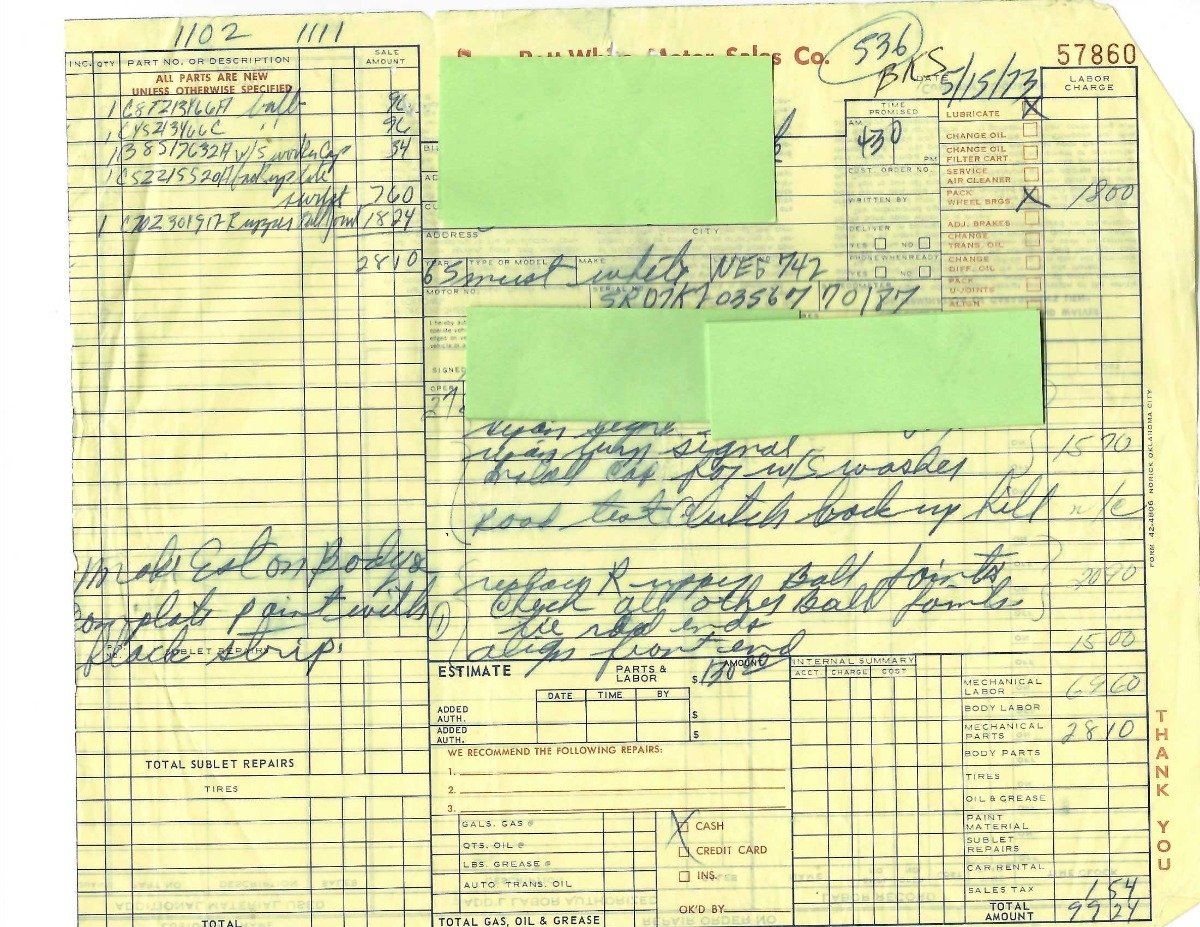 1102 1111
INC. QTY PART NO. OR DESCRIPTION SALE AMOUNT
ALL PARTS ARE NEW
UNLESS OTHERWISE SPECIFIED
1 C8TZ13466A bulb 96
1 C4SZ13466C " 96
1 B8S17632A w/s washer Cap 34
1 C5ZZ15520A back up lite
switch 760
1 upper Ball joint 1824
2810
Make Est on Body &
complete paint with
black strip.
SUBLET REPAIRS
TOTAL SUBLET REPAIRS
TIRES
TOTAL
Motor Sales Co.
536
BKS
57860
DATE 5/15/73
TIME PROMISED
AM 430 PM
CUST. ORDER NO.
WRITTEN BY
DELIVER
YES NO
PHONE WHEN READY
YES NO
LABOR CHARGE
LUBRICATE X
CHANGE OIL
CHANGE OIL FILTER CART.
SERVICE AIR CLEANER
PACK WHEEL BRGS. X 1800
ADJ. BRAKES
CHANGE TRANS. OIL
CHANGE DIFF. OIL
PACK U-JOINTS
ALIGN
ADDRESS CITY
YEAR TYPE OR MODEL MAKE
65 must white NEB 742
MOTOR NO. SERIAL NO.
5R07K103567 70187
SIGNED
OPER.
repair turn signal 1570
install cap for w/s washer
Road test Clutch back up hill n/c
replace R upper Ball Joints 2090
check all other Ball Joints
tie rod ends
align front end 1500
ESTIMATE PARTS & LABOR AMOUNT $ 130 00
DATE TIME BY
ADDED AUTH. $
ADDED AUTH. $
WE RECOMMEND THE FOLLOWING REPAIRS:
1.
2.
3.
GALS. GAS @
QTS. OIL @
LBS. GREASE @
AUTO. TRANS. OIL
TOTAL GAS, OIL & GREASE
X CASH
CREDIT CARD
INS.
OK'D BY
INTERNAL SUMMARY
ACCT. CHARGE COST
MECHANICAL LABOR 6960
BODY LABOR
MECHANICAL PARTS 2810
BODY PARTS
TIRES
OIL & GREASE
PAINT MATERIAL
SUBLET REPAIRS
CAR RENTAL
SALES TAX 154
TOTAL AMOUNT 9924
FORM 42-4806 NORICK OKLAHOMA CITY
THANK YOU